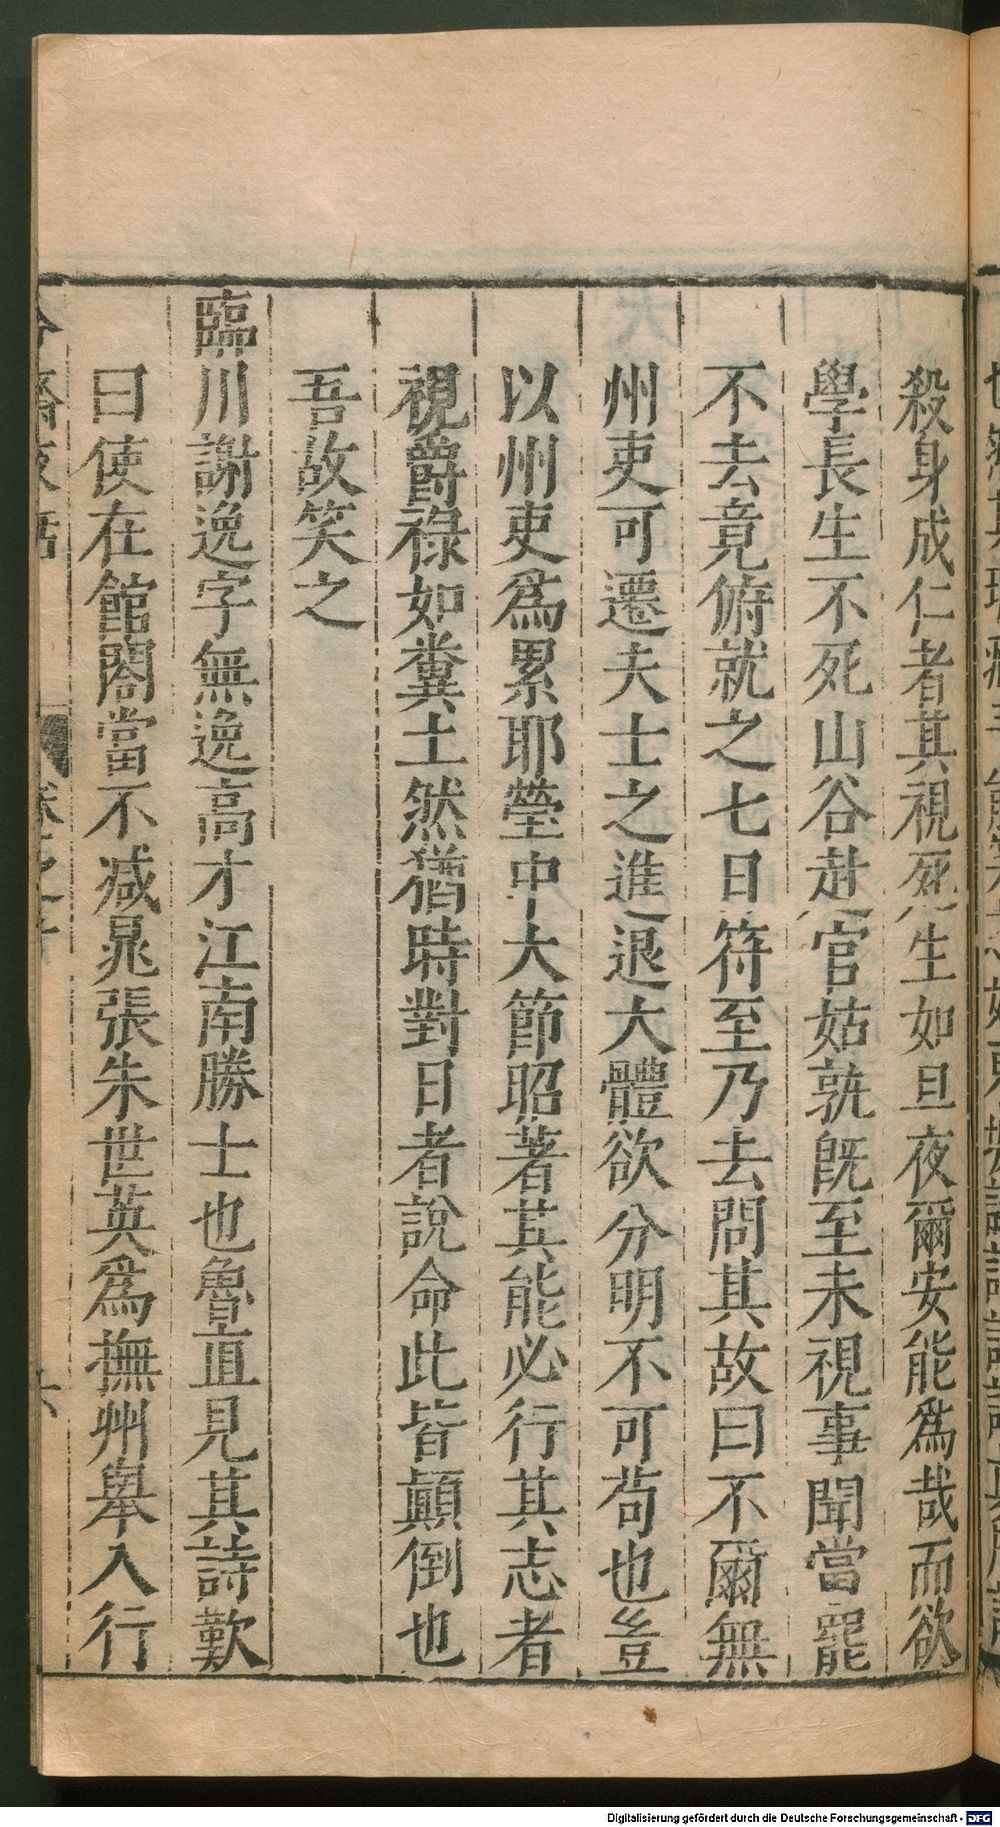 殺身成仁者其視死生如旦夜爾安能爲哉而欲
學長生不死山谷赴官姑孰既至未視事聞當罷
不去竟俯就之七日符至乃去問其故曰不爾無
州吏可遷夫士之進退大體欲分明不可苟也豈
以州吏爲累耶瑩中大節昭著其能必行其志者
視爵祿如糞土然猶時對日者說命此皆顛倒也
吾故笑之
臨川謝逸字無逸高才江南勝士也魯直見其詩歎
曰使在館閣當不减晁張朱世英爲撫州舉入行
冷齋夜話
卷之十
六
Digitalisierung gefördert durch die Deutsche Forschungsgemeinschaft - DFG